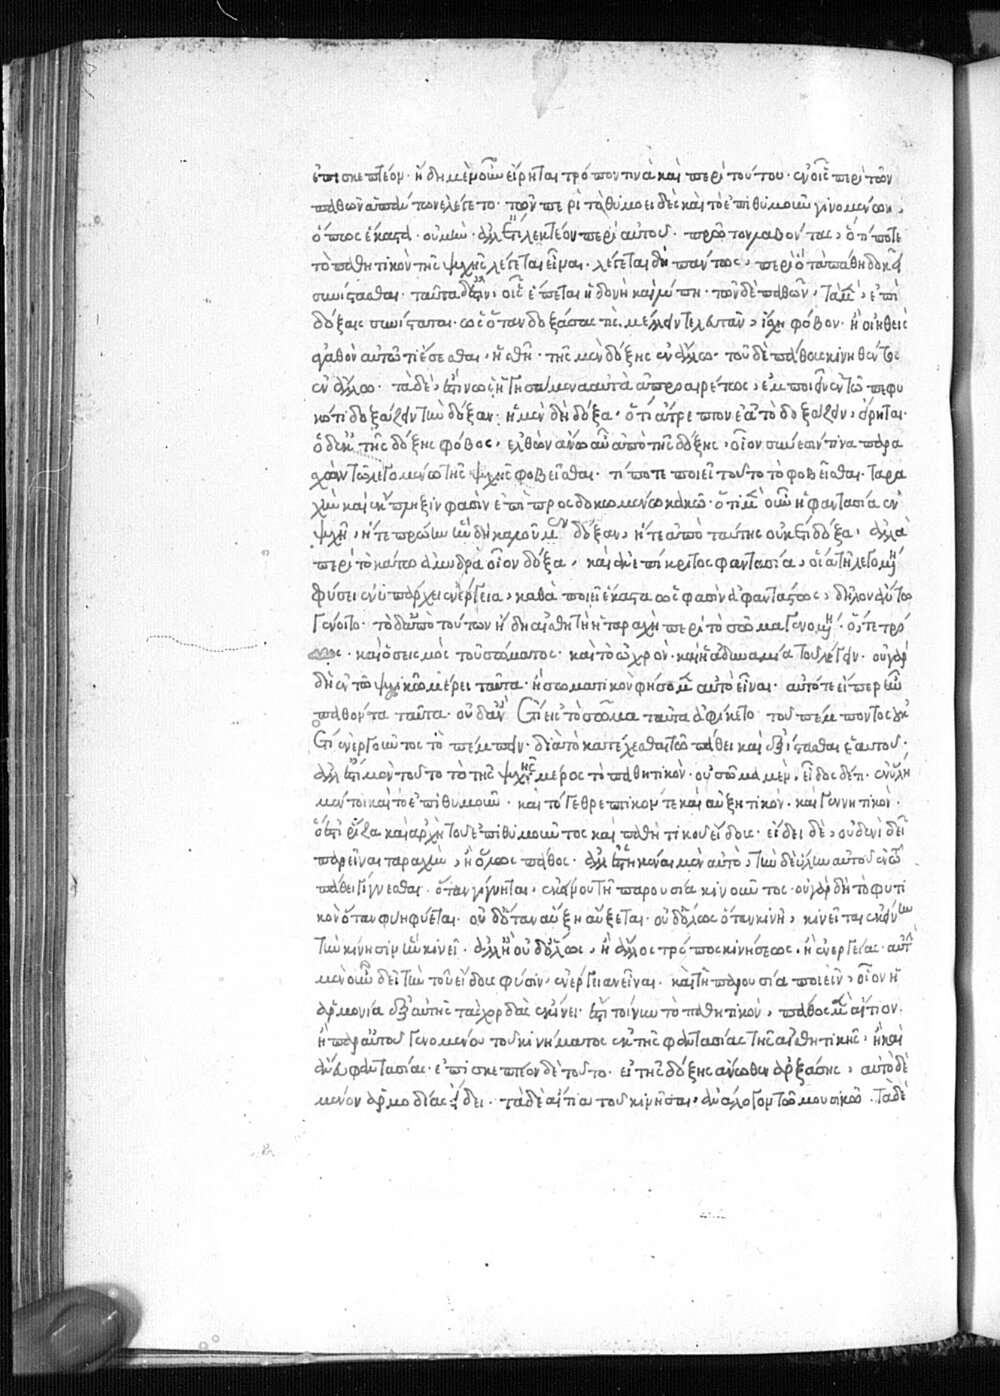 ἐπισκεπτέον· ἤδη μὲν οὖν εἴρηται τρόπον τινὰ καὶ περὶ τούτου· ἐν οἷς περὶ τῶν
παθῶν ἁπάντων ἐλέγετο· τῶν περὶ τὸ θυμοειδὲς καὶ τὸ ἐπιθυμοῦν γινομένων,
ὅπως ἕκαστα· οὐ μὴν· ἀλλ' ἔτι λεκτέον περὶ αὐτοῦ· πρῶτον λαβόντας, ὅ τί ποτε
τὸ παθητικὸν τῆς ψυχῆς λέγεται εἶναι· λέγεται δὴ πάντως, περὶ ὃ τὰ πάθη δοκεῖ
συνίστασθαι· ταῦτα δ' ἐστὶν, οἷς ἕπεται ἡδονὴ καὶ λύπη· τῶν δὲ παθῶν, τὰ μὲν, ἐπὶ
δόξαις συνίσταται· ὡς ὅταν δοξάσας τις μέλλειν τελευτᾶν, ἴσχῃ φόβον· ἢ οἰηθεὶς
ἀγαθὸν αὐτῷ τι ἔσεσθαι, ἡσθῇ· τῆς μὲν δόξης ἐν ἄλλῳ· τοῦ δὲ πάθους κινηθέντος
ἐν ἄλλῳ· τὰ δέ, ἐστιν ὡς ἡγησάμενα αὐτὰ ἀπροαιρέτως, ἐμποιεῖν ἐν τῷ πεφυ
κότι δοξάζειν τὴν δόξαν· ἡ μὲν δὴ δόξα, ὅτι ἄτρεπτον ἐᾷ τὸ δοξάζειν, εἴρηται·
ὁ δ' ἐκ τῆς δόξης φόβος, ἐλθὼν ἄνωθεν αὖ ἀπὸ τῆς δόξης, οἷον σύνεσίν τινα παρα
σχὼν τῷ λεγομένῳ τῆς ψυχῆς φοβεῖσθαι· τί ποτε ποιεῖ τοῦτο τὸ φοβεῖσθαι· ταρα
χὴν καὶ ἔκπληξίν φασιν ἐπὶ προσδοκωμένῳ κακῷ· ὅτι μὲν οὖν ἡ φαντασία ἐν
ψυχῇ, ἥ τε πρώτη ἣν δὴ καλοῦμεν δόξαν, ἥ τε ἀπὸ ταύτης οὐκέτι δόξα, ἀλλὰ
περὶ τὸ κάτω ἀμυδρὰ οἷον δόξα, καὶ ἀνεπίκριτος φαντασία, οἵα τῇ λεγομένῃ
φύσει ἐνυπάρχει ἐνέργεια, καθὰ ποιεῖ ἕκαστα ὥς φασιν ἀφαντάστως, δῆλον ἄν τῳ
γένοιτο· τὸ δ' ἀπὸ τούτων ἤδη αἰσθητὴ ἡ ταραχὴ περὶ τὸ σῶμα γενομένη· ὅ, τε τρό
μος· καὶ ὁ σεισμὸς τοῦ σώματος· καὶ τὸ ὠχρὸν· καὶ ἡ ἀδυναμία τοῦ λέγειν· οὐ γὰρ
δὴ ἐν τῷ ψυχικῷ μέρει ταῦτα· ἢ σωματικὸν φήσομεν αὐτὸ εἶναι· αὐτό τε εἴπερ ἦν
παθὸν τὰ ταῦτα· οὐδ' ἂν ἔτι εἰς τὸ σῶμα ταῦτα ἀφίκετο· τοῦ πέμποντος οὐκ
ἔτι ἐνεργοῦντος τὸ πέμπειν· διὰ τὸ κατέχεσθαι τῷ πάθει καὶ ἐξίστασθαι ἑαυτοῦ·
ἀλλ' ἔστι μὲν τοῦτο τὸ τῆς ψυχῆς μέρος τὸ παθητικὸν· οὐ σῶμα μὲν, εἶδος δέ τι· ἐν ὕλῃ
μέντοι καὶ τὸ ἐπιθυμοῦν· καὶ τό γε θρεπτικόν τε καὶ αὐξητικὸν· καὶ γεννητικὸν·
ὅ ἐστι ῥίζα καὶ ἀρχὴ τοῦ ἐπιθυμοῦντος καὶ παθητικοῦ εἴδους· εἴδει δὲ, οὐδενὶ δεῖ
παρεῖναι ταραχὴν, ἢ ὅλως πάθος· ἀλλ' ἑστηκέναι μὲν αὐτὸ, τὴν δὲ ὕλην αὐτοῦ ἐν τῷ
πάθει γίγνεσθαι· ὅταν γίγνηται, ἐκείνου τῇ παρουσίᾳ κινοῦντος· οὐ γὰρ δὴ τὸ φυτι
κὸν ὅταν φυῇ φύεται· οὐδ' ὅταν αὔξῃ αὔξεται· οὐδ' ὅλως ὅταν κινῇ, κινεῖται ἐκείνην
τὴν κίνησιν ἣν κινεῖ· ἀλλ' ἢ οὐδ' ὅλως, ἢ ἄλλος τρόπος κινήσεως, ἢ ἐνεργείας· αὐτὴν
μὲν οὖν δεῖ τὴν τοῦ εἴδους φύσιν, ἐνέργειαν εἶναι· καὶ τῇ παρουσίᾳ ποιεῖν, οἷον εἰ ἡ
ἁρμονία ἐξ αὐτῆς τὰς χορδὰς ἐκίνει· ἔσται τοίνυν τὸ παθητικὸν, πάθους μὲν αἴτιον·
ἢ παρ' αὐτοῦ γενομένου τοῦ κινήματος ἐκ τῆς φαντασίας τῆς αἰσθητικῆς, ἢ καὶ
ἄνευ φαντασίας· ἐπισκεπτέον δὲ τοῦτο· εἰ τῆς δόξης ἄνωθεν ἀρξάσης, αὐτὸ δὲ
μένον ἁρμονίας εἴδει· τὰ δὲ αἴτια τοῦ κινῆσαι, ἀνάλογον τῷ μουσικῷ· τὰ δὲ